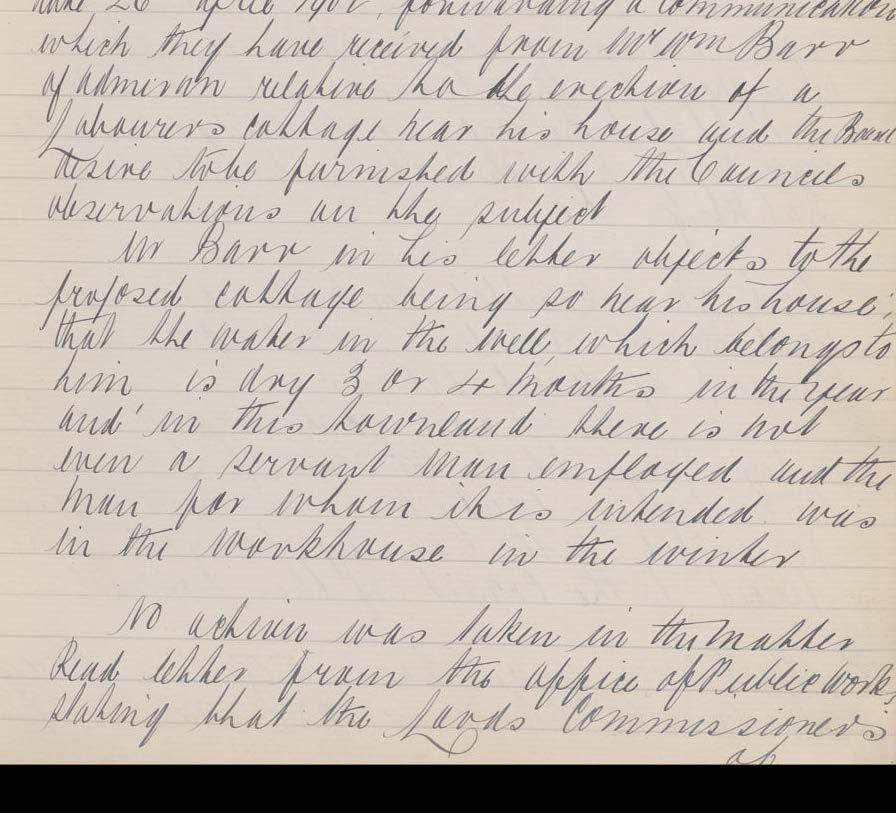 date 26th April 1902, forwarding a communication
which they have received from Mr Wm Barr
of Admiran relative to the erection of a
Labourers cottage near his house and the Board
desire to be furnished with the Councils
observations on the subject
Mr Barr in his letter objects to the
proposed cottage being so near his house;
that the water in the well, which belongs to
him is dry 3 or 4 months in the year
and in this townland there is not
even a servant man employed and the
man for whom it is intended was
in the workhouse in the winter
No action was taken in the matter
Read letter from the office of Public Works,
stating that the Lords Commissioners
of